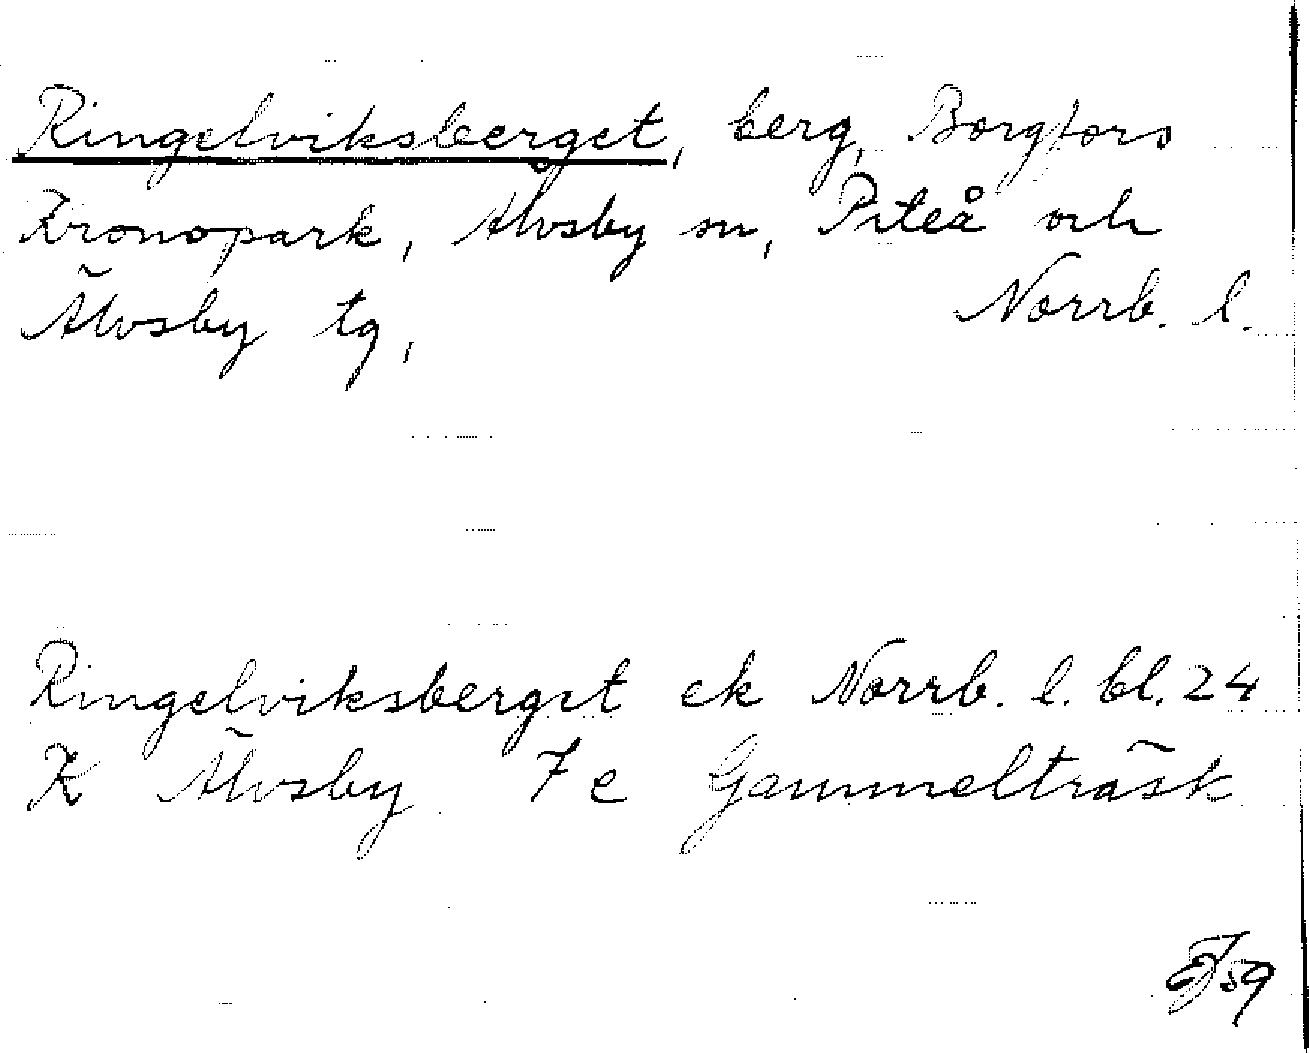 Ringelviksberget, berg, Borgfors
Kronopark, Älvsby sn, Piteå och
Älvsby tg, Norrb. l.
Ringelviksberget ek Norrb. l. bl. 24
K Älvsby 7 e Gammelträsk
59